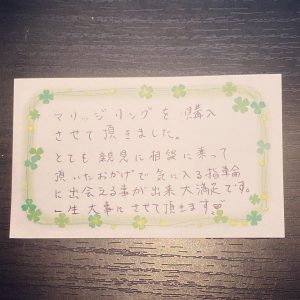 マリッジリングを購入
させて頂きました。
とても親身に相談に乗って
頂いたおかげで気に入る指輪
に出会える事が出来大満足です。
一生大事にさせて頂きます。